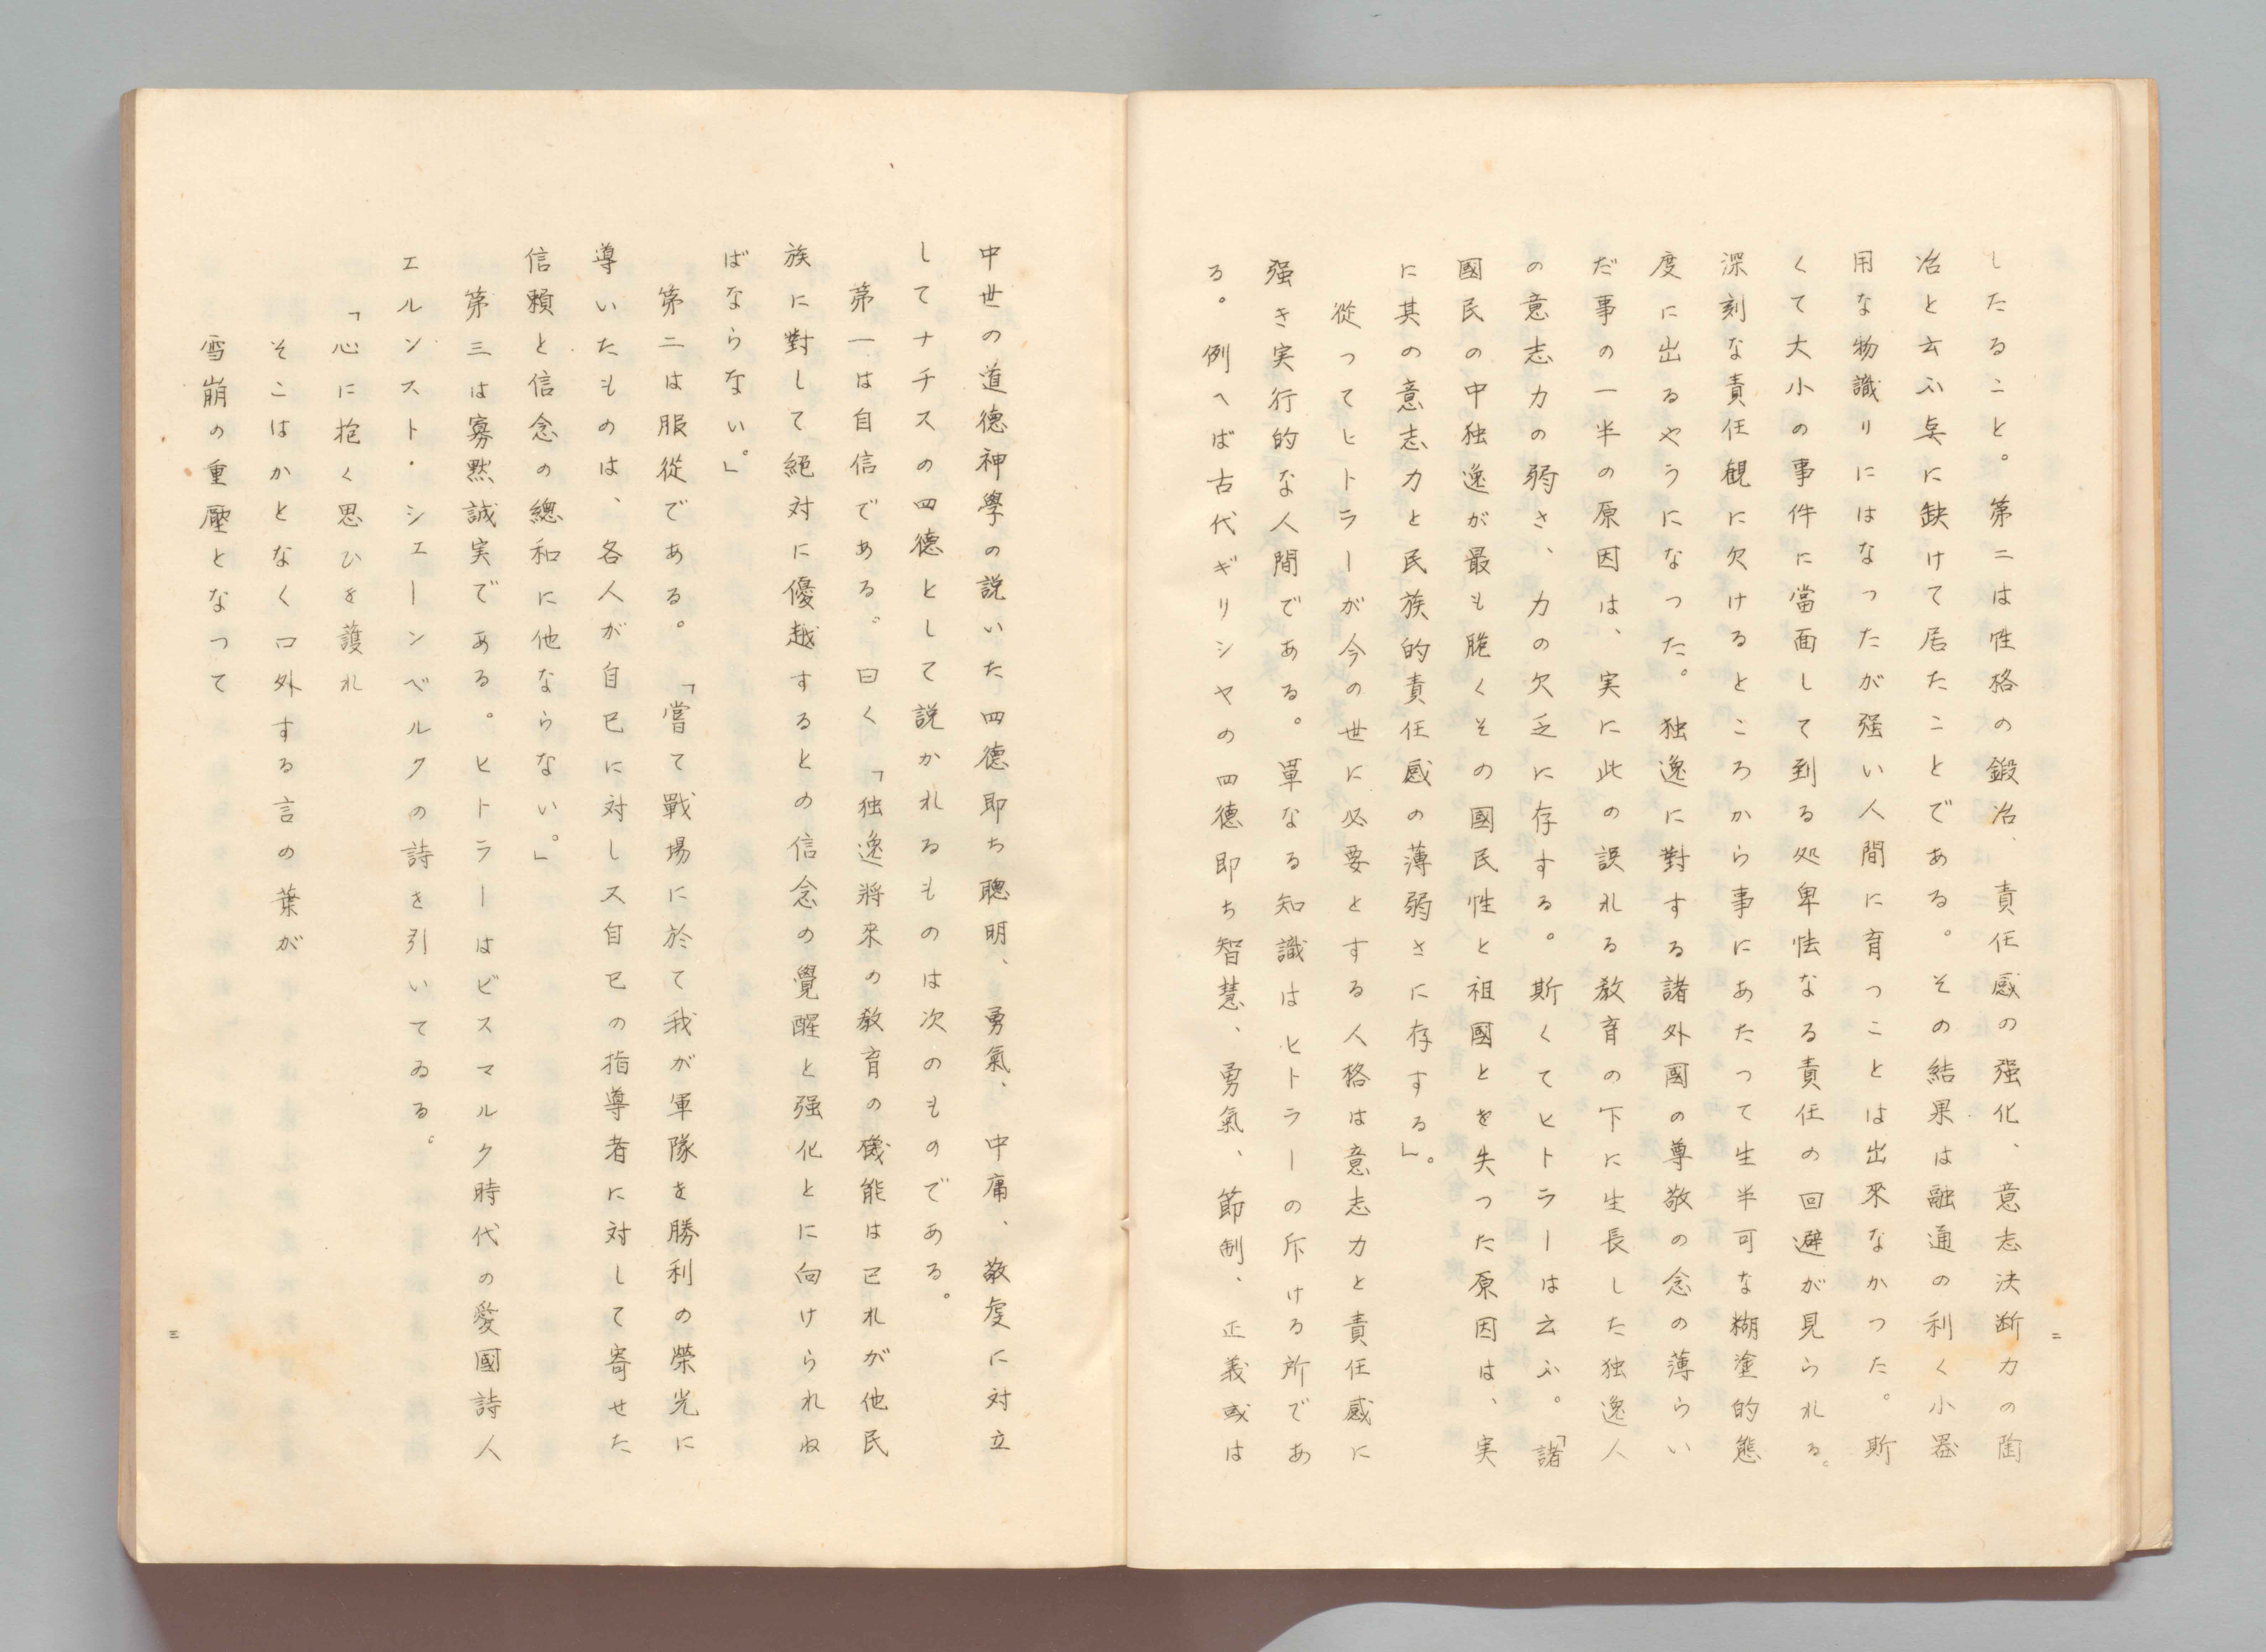 したること。第二は性格の鍛冶、責任感の強化、意志決断力の陶
冶と云ふ点に缺けて居たことである。その結果は融通の利く小器
用な物識りにはなつたが强い人間に育つことは出來なかつた。斯
くて大小の事件に當面して到る処卑怯なる責任の回避が見られる。
深刻な責任観に欠けるところから事にあたつて生半可な糊塗的態
度に出るやうになつた。独逸に對する諸外國の尊敬の念の薄らい
だ事の一半の原因は、実に此の誤れる教育の下に生長した独逸人
の意志力の弱さ、力の欠乏に存する。斯くてヒトラーは云ふ。「諸
國民の中独逸が最も脆くその國民性と祖國とを失つた原因は、実
に其の意志力と民族的責任感の薄弱さに存する」。
從つてヒトラーが今の世に必要とする人格は意志力と責任感に
强き実行的な人間である。單なる知識はヒトラーの斥ける所であ
る。例へば古代ギリシヤの四德即ち智慧、勇氣、節制、正義或は
二
中世の道德神學の説いた四德即ち聰明、勇氣、中庸、敬虔に対立
してナチスの四德として説かれるものは次のものである。
第一は自信である。曰く「独逸將來の教育の機能は己れが他民
族に對して絕対に優越するとの信念の覺醒と强化とに向けられね
ばならない。」
第二は服從である。「嘗て戰場に於て我が軍隊を勝利の榮光に
導いたものは、各人が自已に対し又自已の指導者に対して寄せた
信賴と信念の總和に他ならない。」
第三は寡黙誠実である。ヒトラーはビスマルク時代の愛國詩人
エルンスト・シエーンベルクの詩を引いてゐる。
「心に抱く思ひを護れ
そこはかとなく口外する言の葉が
雪崩の重壓となつて
三